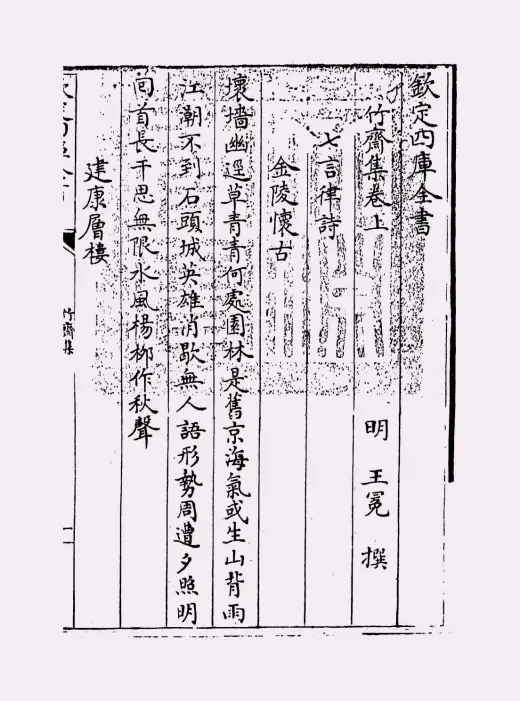 欽定四庫全書
竹齋集卷上
明 王冕 撰
七言律詩
金陵懷古
壞墻幽逕草青青何處園林是舊京海氣或生山背雨
江潮不到石頭城英雄消歇無人語形勢周遭夕照明
囘首長干思無限水風楊柳作秋聲
建康層樓
竹齋集